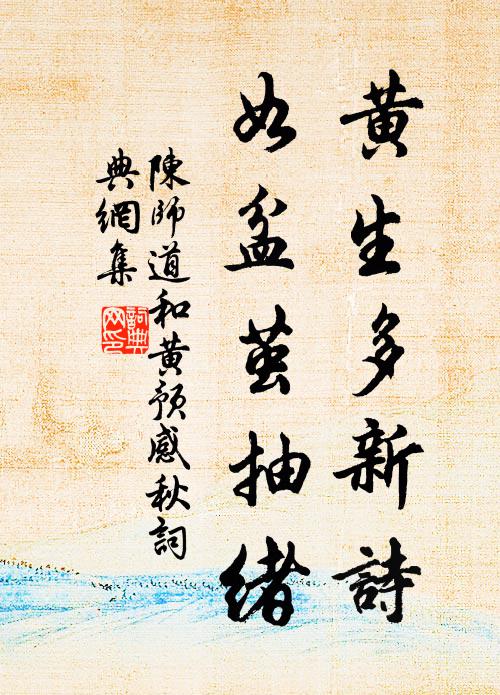 黃生多新詩
如盆茧抽緒
陳師道和黃預感秋詞
典網集
詞典
网印